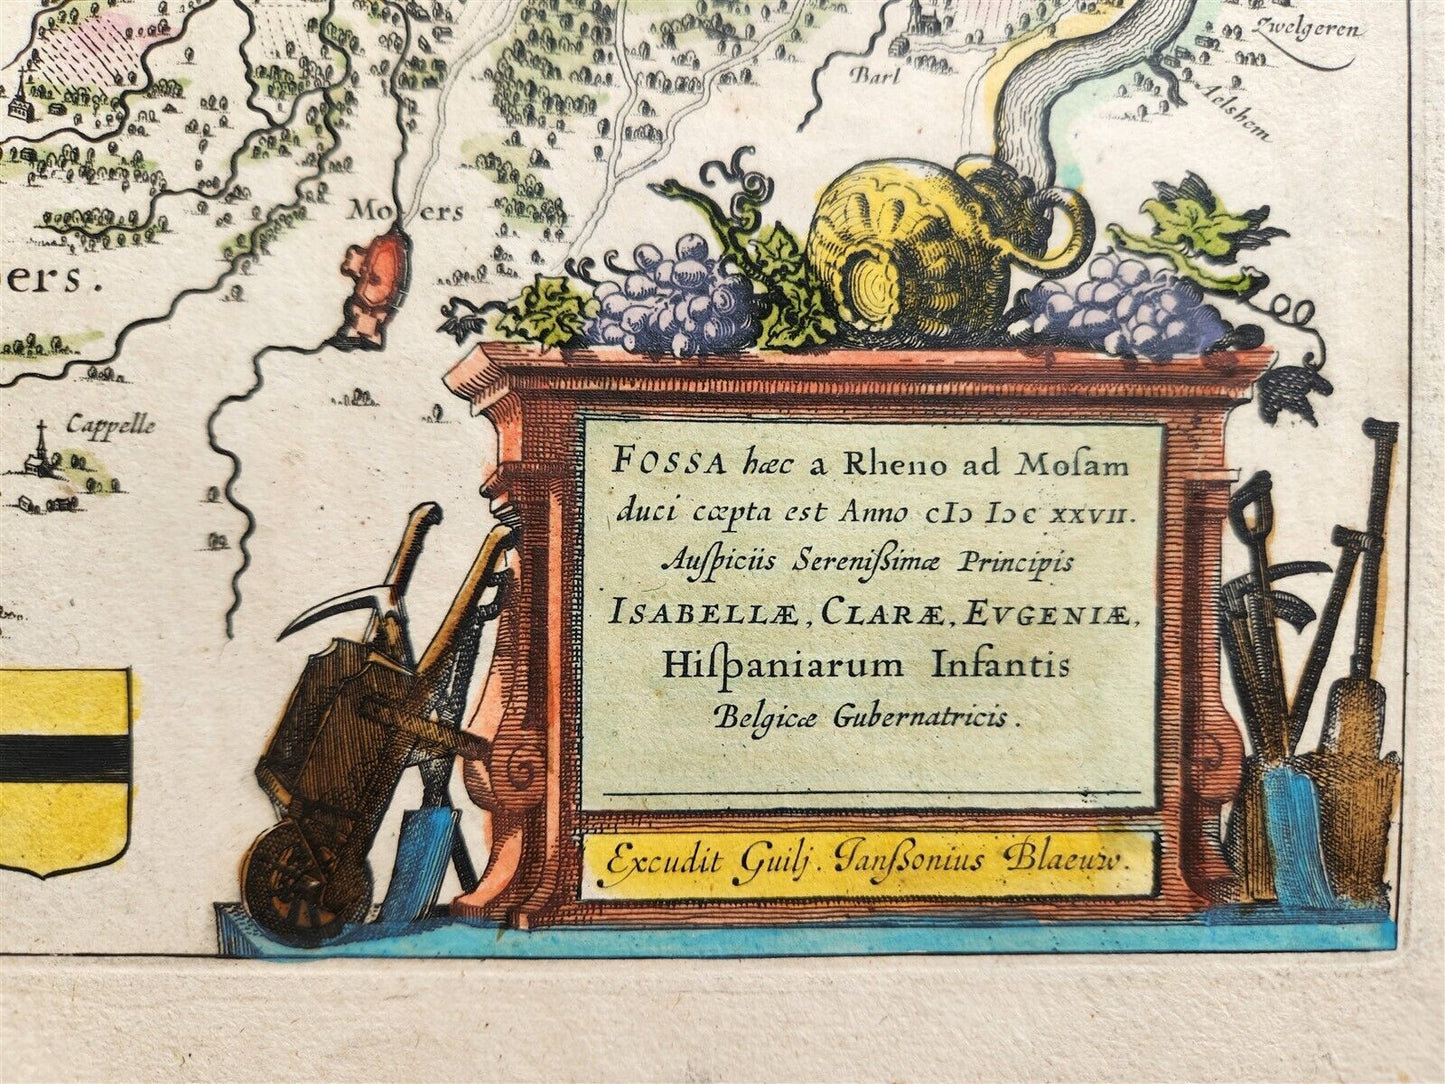 Zwelgeren
Barl
Aelshem
Moers
ers.
Cappelle
FOSSA hæc a Rheno ad Moſam
duci cœpta est Anno cIɔ Iɔc XXVII.
Auſpiciis Sereniſsimæ Principis
ISABELLÆ, CLARÆ, EVGENIÆ,
Hiſpaniarum Infantis
Belgicæ Gubernatricis.
Excudit Guilj. Ianſsonius Blaeuw.